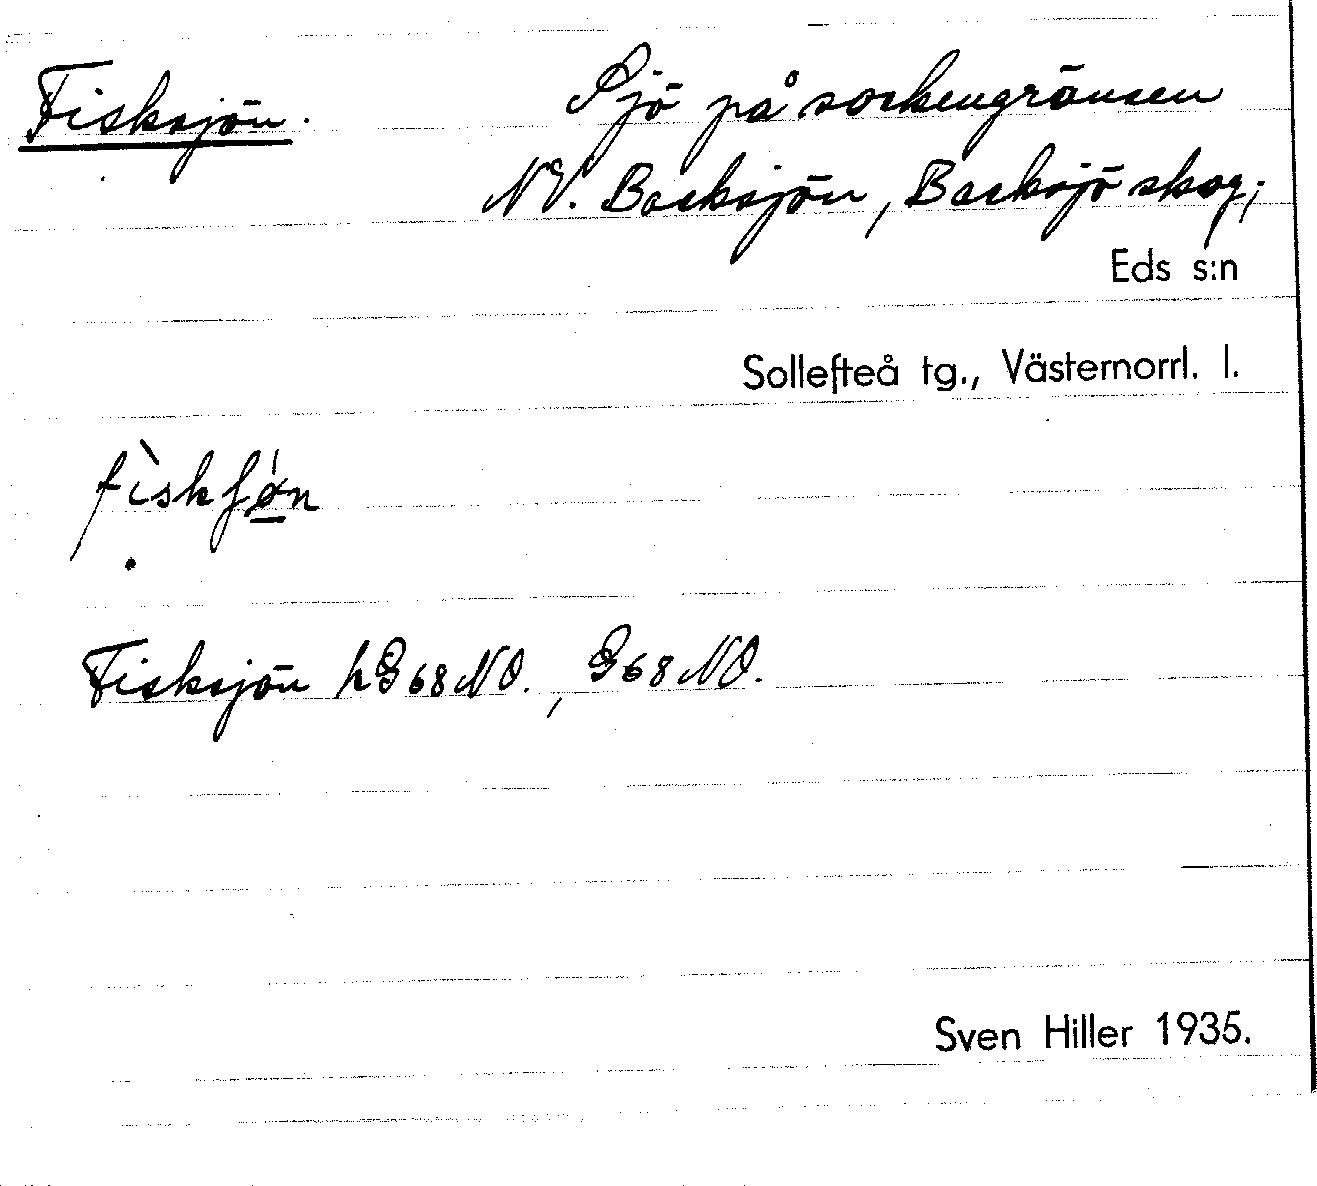 Fisksjön. Sjö på sockengränsen
NV. Backsjön, Backsjö skog,
Eds s:n
Sollefteå tg., Västernorrl. l.
fìskʃǿn
Fisksjön hG68NO., G68NO.
Sven Hiller 1935.